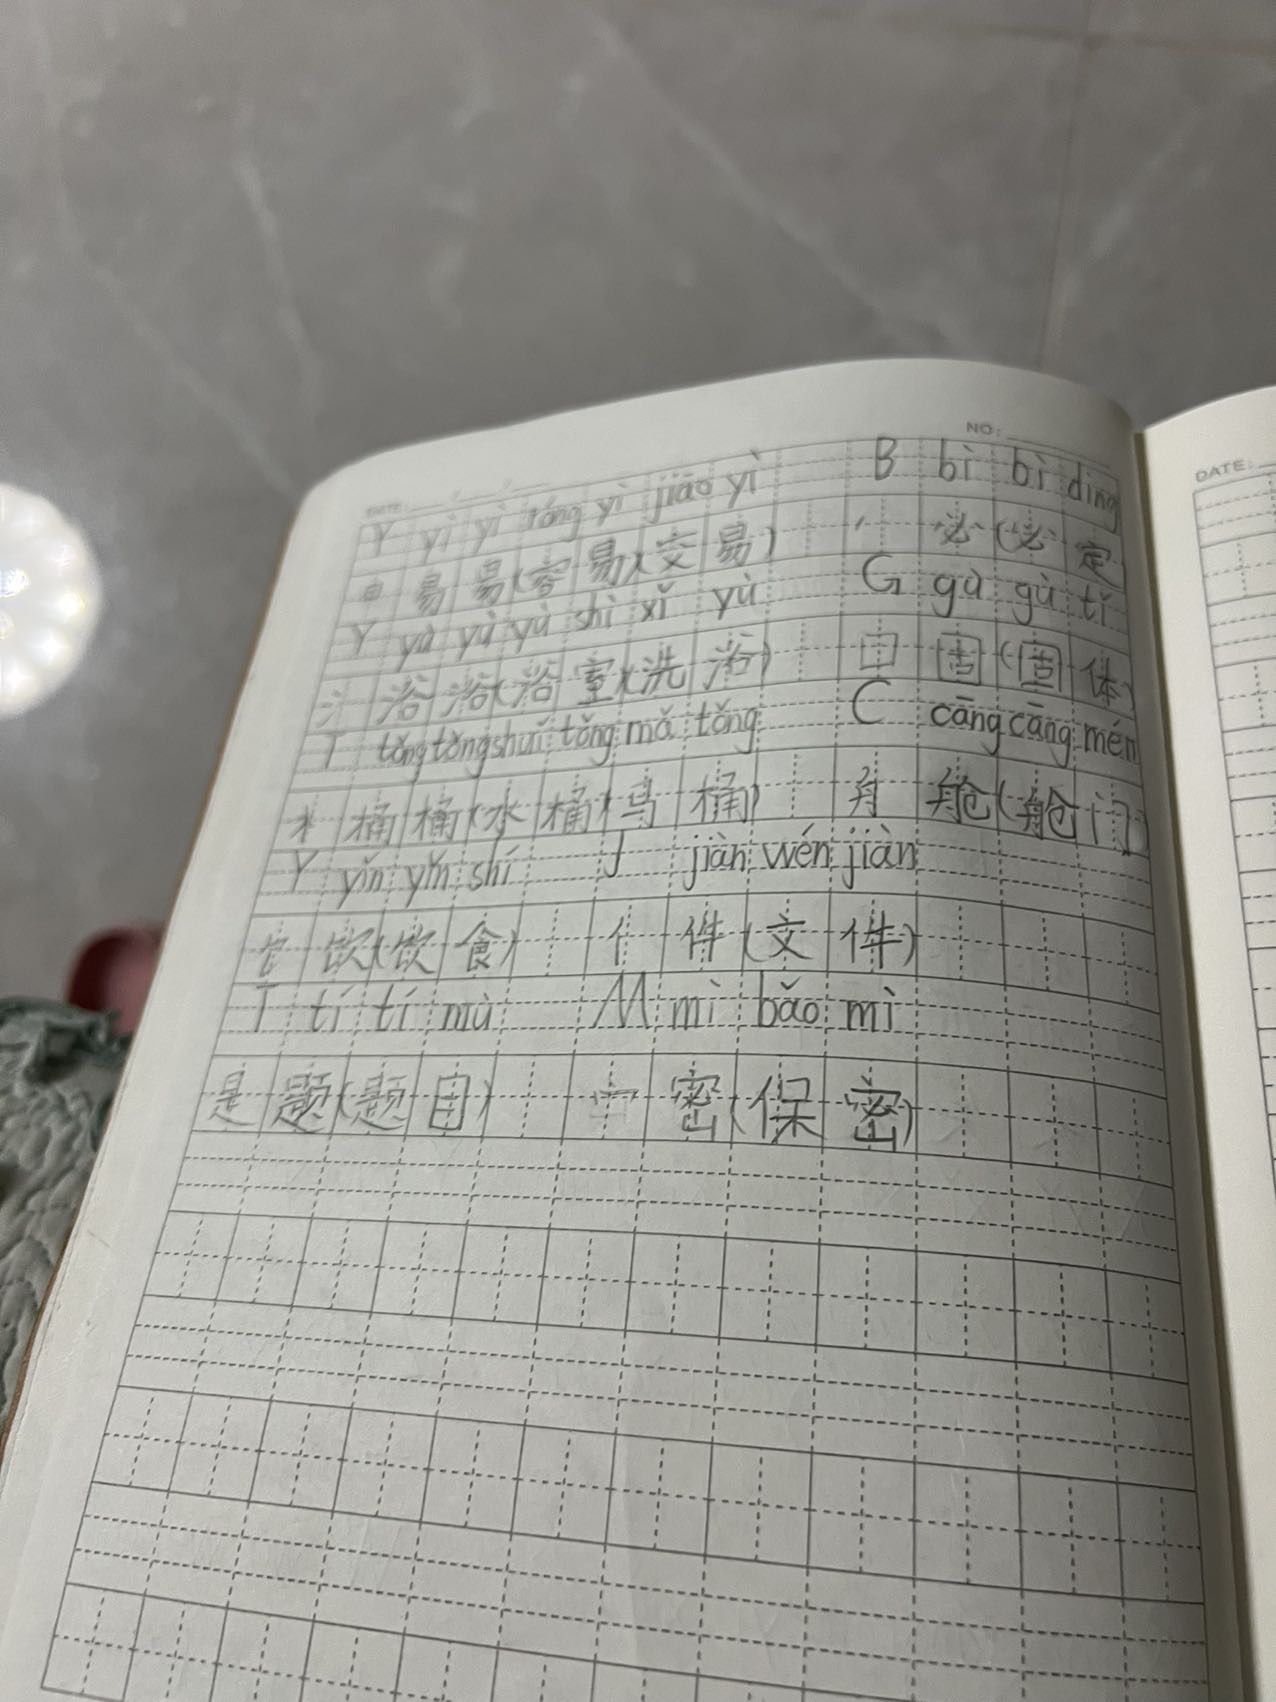 NO:
DATE:
DATE:
Y yì yì róng yì jiāo yì B bì bì ding
日 易 易(容 易)(交 易) 丿 必(必 定
Y yù yù yù shì xǐ yù G gù gù tǐ
氵 浴 浴(浴 室)(洗 浴) 囗 固(固 体)
T tǒng tǒng shuǐ tǒng mǎ tǒng C cāng cāng mén
木 桶 桶(水 桶)(马 桶) 舟 舱(舱 门)
Y yǐn yǐn shí J jiàn wén jiàn
饣 饮(饮 食) 亻 件(文 件)
T tí tí mù M mì bǎo mì
是 题(题 目) 宀 密(保 密)